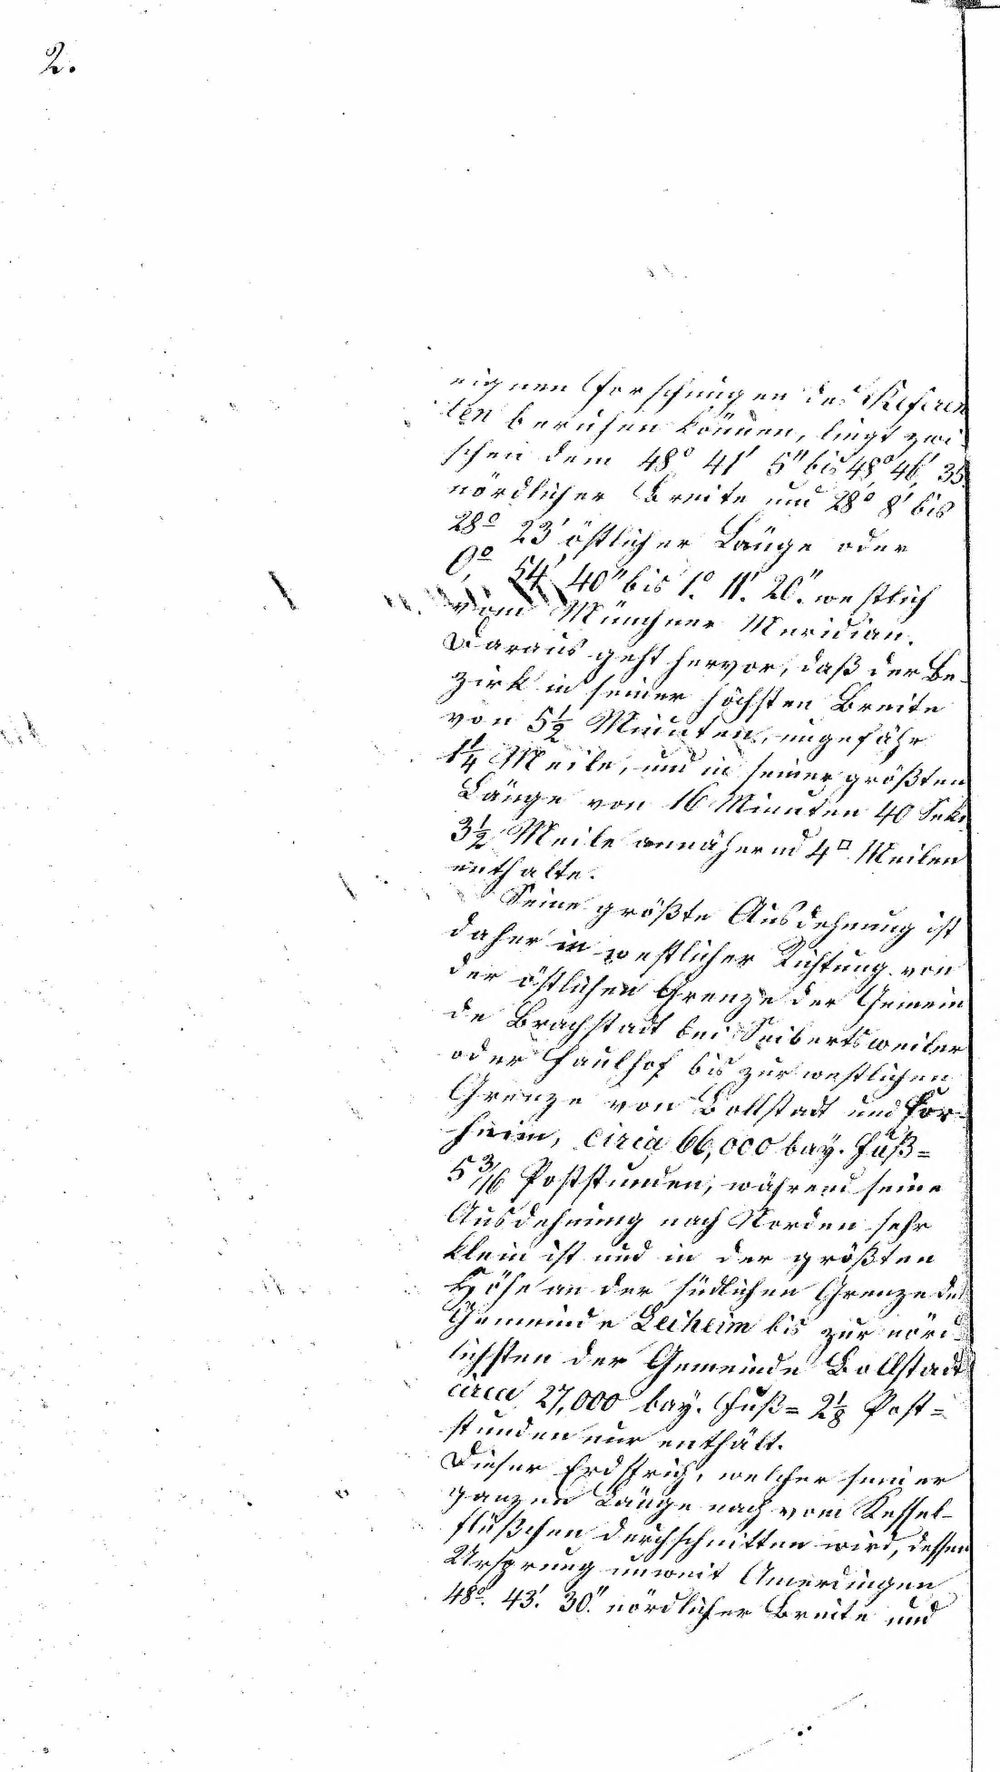 2.
eignen Forschungen des Referen
ten berufen können, liegt zwi-
schen dem 48° 41' 5" bis 48° 46' 35
nördlicher Breite und 28° 8' bis
28° 23' östlicher Länge oder
0° 54' 40" bis 1° 11' 20" westlich
vom Münchner Meridian.
Daraus geht hervor, daß der Be-
zirk in seiner höchsten Breite
von 5½ Minuten, ungefähr
1¼ Meile, und in seiner größten
Länge von 16 Minuten 40 Sek.
3½ Meile annähernd 4□ Meilen
enthalte.
Seine größte Ausdehnung ist
daher in westlicher Richtung von
der östlichen Grenze der Gemein
de Brachstadt bei Seibertsweiler
oder Faulhof bis zur westlichen
Grenze von Bollstadt und For-
heim, circa 66,000 bay. Fuß =
5 3/16 Poststunden, während seine
Ausdehnung nach Norden sehr
klein ist und in der größten
Höhe an der südlichen Grenze der
Gemeinde Leiheim bis zur nörd
lichsten der Gemeinde Bollstadt
circa 27,000 bay. Fuß = 2⅛ Post=
stunden nur enthält.
Dieser Erdstrich, welcher seiner
ganzen Länge nach vom Kessel-
flüßchen durchschnitten wird, dessen
Ursprung unweit Amerdingen
48°. 43'. 30." nördlicher Breite und